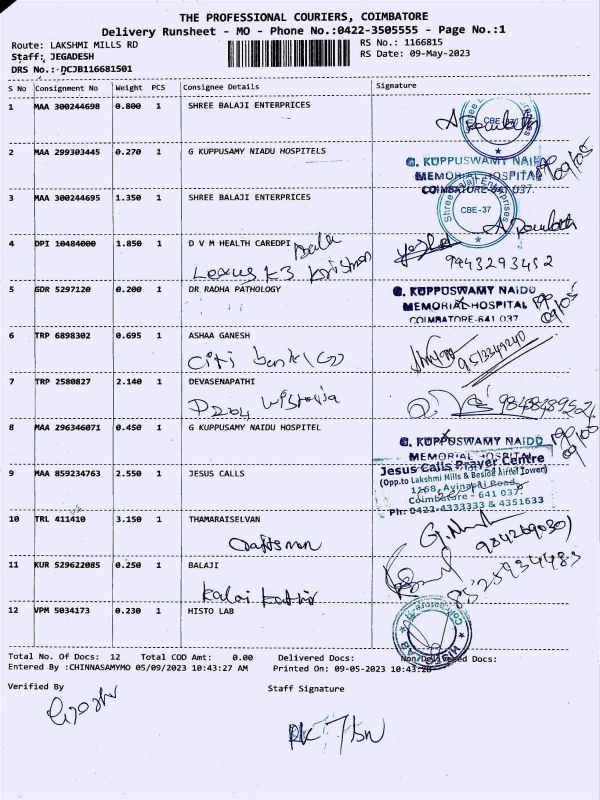 THE PROFESSIONAL COURIERS, COIMBATORE
Delivery Runsheet - MO - Phone No.:0422-3505555 - Page No.:1
Route: LAKSHMI MILLS RD
RS No.: 1166815
Staff: JEGADESH
RS Date: 09-May-2023
DRS No.: DCJB116681501
S No Consignment No Weight PCS Consignee Details Signature
1 MAA 300244698 0.800 1 SHREE BALAJI ENTERPRICES
CBE-37
2 MAA 299303445 0.270 1 G KUPPUSAMY NIADU HOSPITELS
G. KUPPUSWAMY NAIDU
MEMORIAL HOSPITAL
COIMBATORE-641 037.
09/05
3 MAA 300244695 1.350 1 SHREE BALAJI ENTERPRICES
Shree Balaji Enterprises
CBE-37
4 DPI 10484000 1.850 1 D V M HEALTH CAREDPI
Lexus K3 Krishnan
9943293452
5 GDR 5297120 0.200 1 DR RADHA PATHOLOGY
G. KUPPUSWAMY NAIDU
MEMORIAL HOSPITAL
COIMBATORE-641 037
09/05
6 TRP 6898302 0.695 1 ASHAA GANESH
Citi
9513349240
7 TRP 2580827 2.140 1 DEVASENAPATHI
D204 Wistoria
8 MAA 296346071 0.450 1 G KUPPUSAMY NAIDU HOSPITEL
G. KUPPUSWAMY NAIDU
MEMORIAL HOSPITAL
09/05
9 MAA 859234763 2.550 1 JESUS CALLS
Jesus Calls Prayer Centre
(Opp.to Lakshmi Mills & Beside Airtel Tower)
1268, Avinashi Road,
Coimbatore - 641 037.
Ph: 0422-4333333 & 4351633
10 TRL 411410 3.150 1 THAMARAISELVAN
Craftsman
9842690301
11 KUR 529622085 0.250 1 BALAJI
8525934483
12 VPM 5034173 0.230 1 HISTO LAB
Total No. Of Docs: 12 Total COD Amt: 0.00 Delivered Docs: Non-Delivered Docs:
Entered By :CHINNASAMYMO 05/09/2023 10:43:27 AM Printed On: 09-05-2023 10:43:28
Verified By
Staff Signature